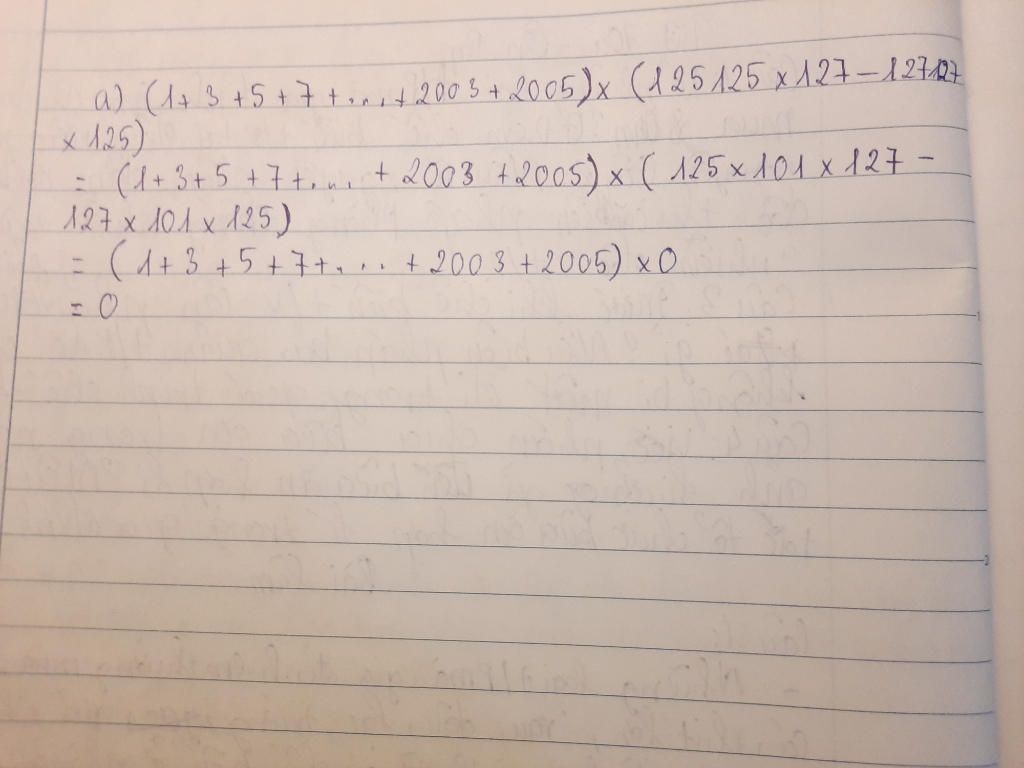 a) (1 + 3 + 5 + 7 + ... + 2003 + 2005) x (125125 x 127 - 127127
x 125)
= (1 + 3 + 5 + 7 + .... + 2003 + 2005) x ( 125 x 101 x 127 -
127 x 101 x 125)
= (1 + 3 + 5 + 7 + .... + 2003 + 2005) x 0
= 0